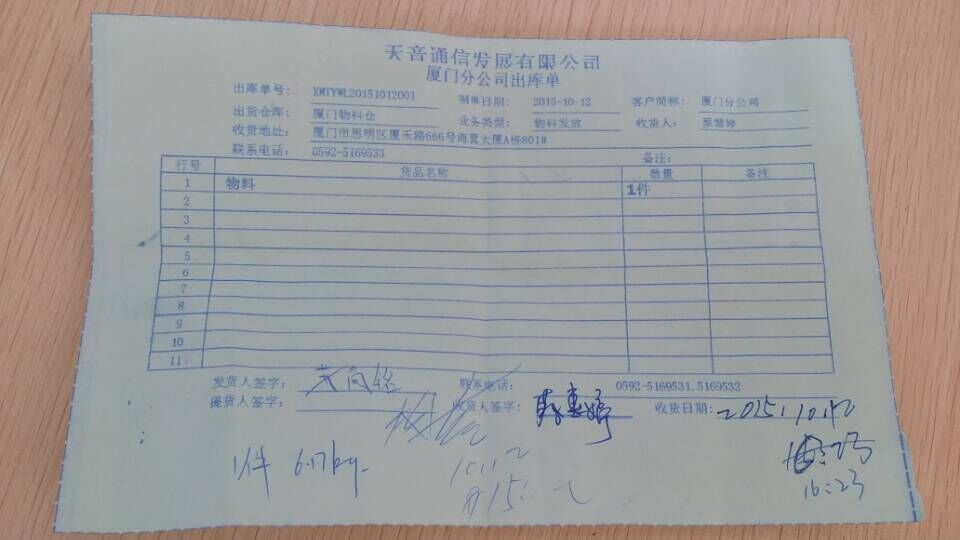 天音通信发展有限公司
厦门分公司出库单
出库单号： XMTYWL20151012001 制单日期： 2015-10-12 客户简称： 厦门分公司
出货仓库： 厦门物料仓 业务类型： 物料发放 收货人： 蔡慧婷
收货地址： 厦门市思明区厦禾路666号海翼大厦A栋801#
联系电话： 0592-5169533 备注：
行号 货品名称 数量 备注
1 物料 1件
2
3
4
5
6
7
8
9
10
11
发货人签字： 联系电话： 0592-5169531.5169532
提货人签字： 收货人签字： 蔡惠婷 收货日期： 2015.10.12
1件 6.17kg
10.12
16:23